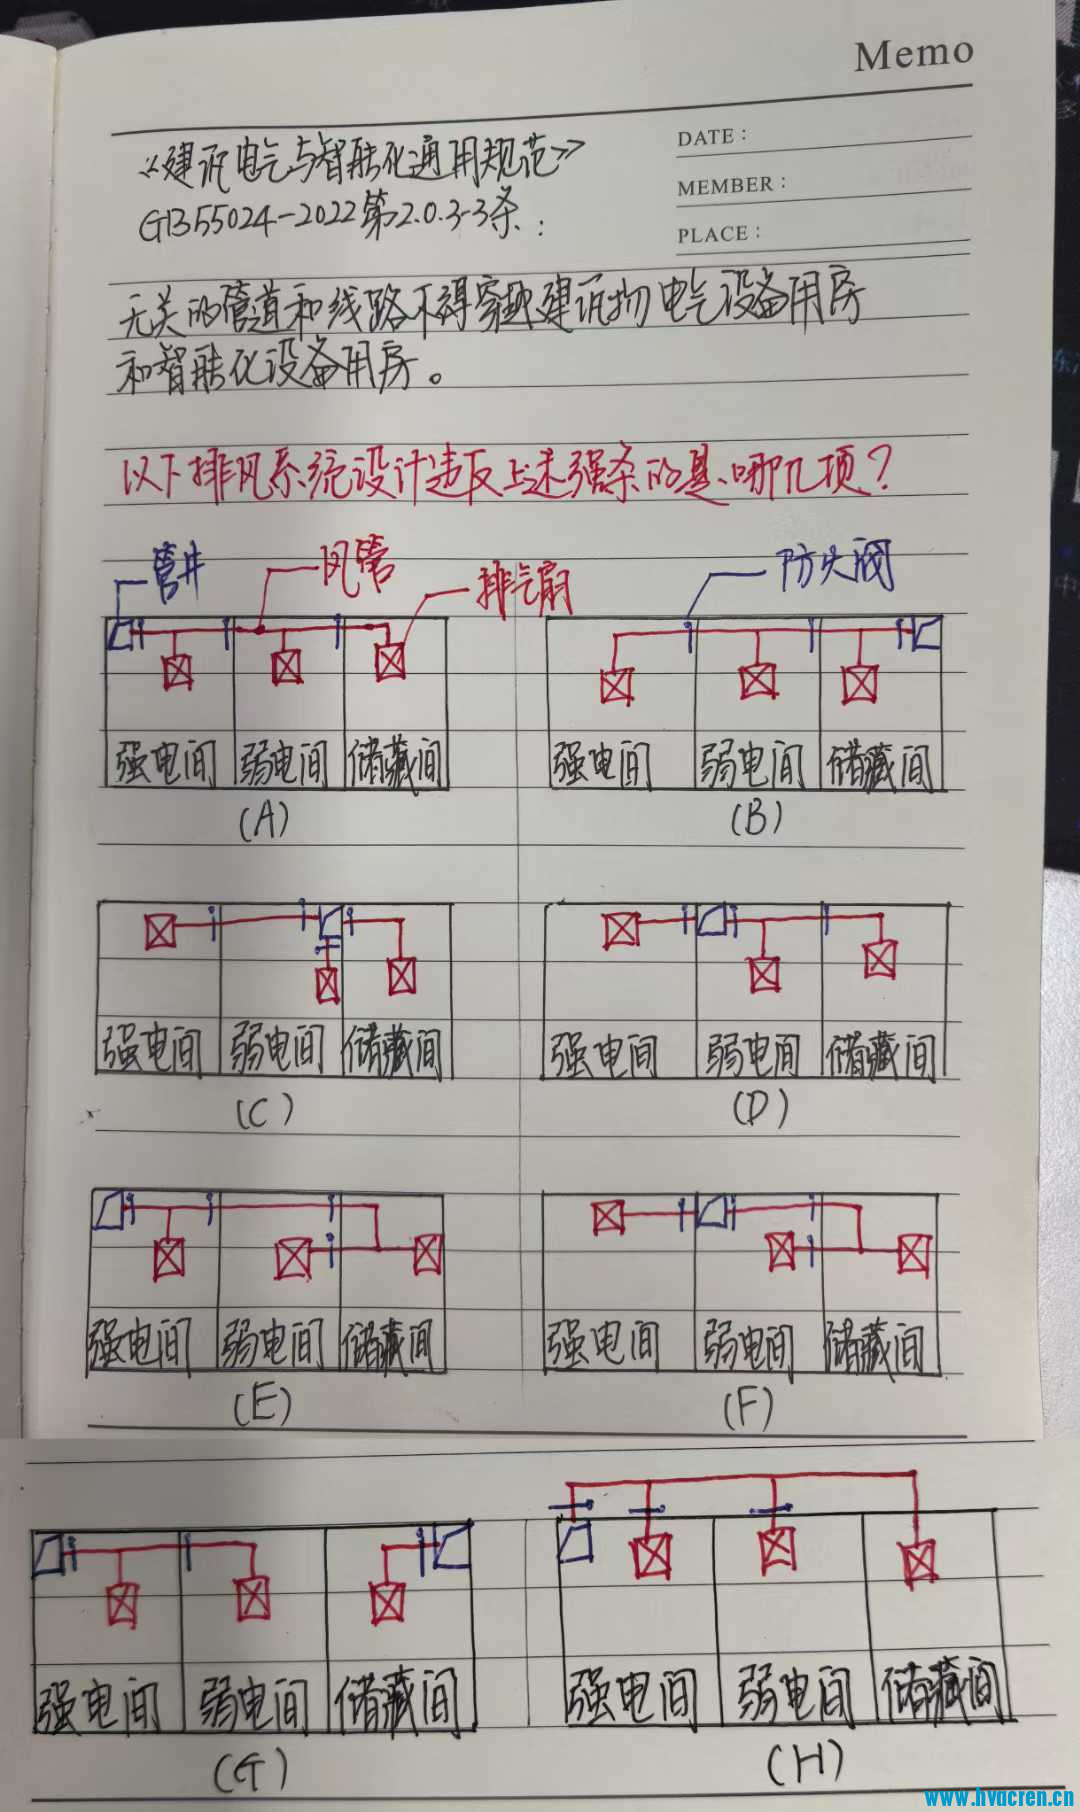 Memo
DATE:
MEMBER:
PLACE:
《建筑电气与智能化通用规范》
GB55024-2022第2.0.3-3条:
无关的管道和线路不得穿越建筑物电气设备用房
和智能化设备用房。
以下排风系统设计违反上述强条的是哪几项?
管井 风管 排气扇 防火阀
强电间 弱电间 储藏间 强电间 弱电间 储藏间
(A) (B)
强电间 弱电间 储藏间 强电间 弱电间 储藏间
(C) (D)
强电间 弱电间 储藏间 强电间 弱电间 储藏间
(E) (F)
强电间 弱电间 储藏间 强电间 弱电间 储藏间
(G) (H)
www.hvacren.cn